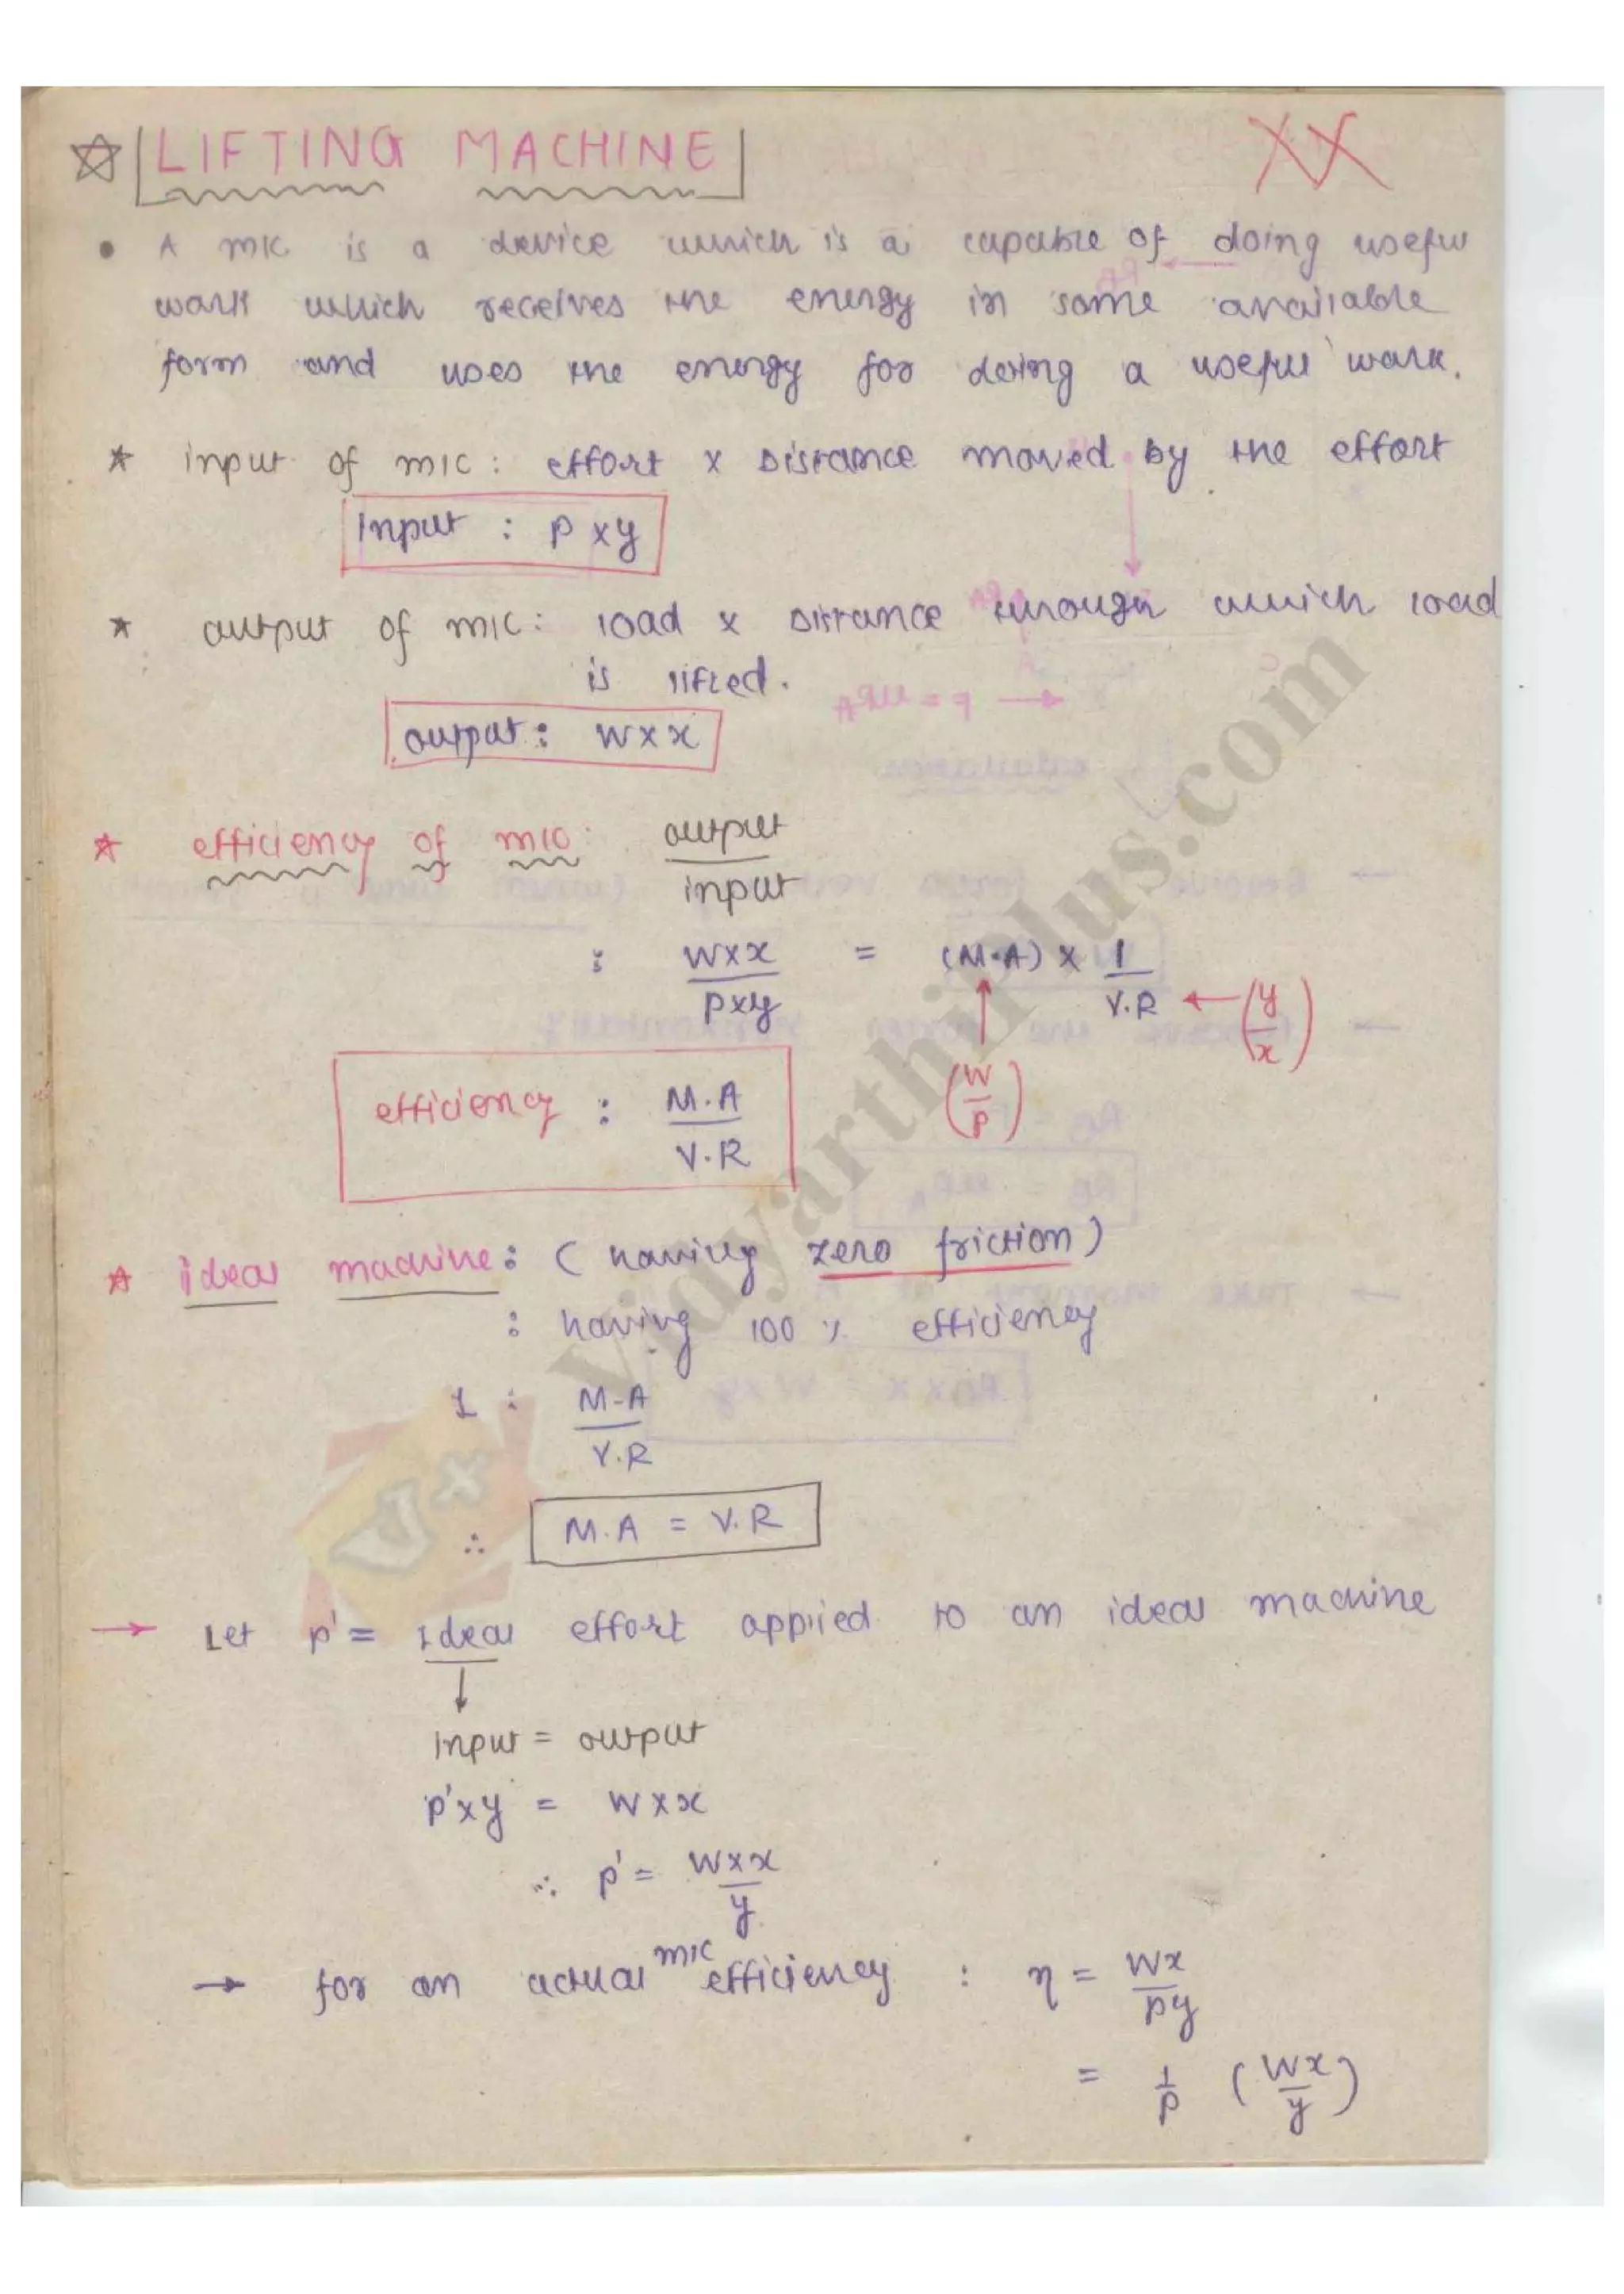 ☆ LIFTING MACHINE
XX
• A m/c is a device which is a capable of doing useful
work which receives the energy in some available
form and uses the energy for doing a useful work.
* input of m/c : effort x Distance moved by the effort
Input : P x y
* output of m/c : load x Distance through which load
is lifted.
output : W x x
* efficiency of m/c : output / input
: W x x / P x y = (M.A) x 1 / V.R ← (y / x)
(W / P)
efficiency : M.A / V.R
* ideal machine : (having zero friction)
: having 100 % efficiency
1 : M.A / V.R
∴ M.A = V.R
→ Let p' = Ideal effort applied to an ideal machine
↓
Input = output
p' x y = W x x
∴ p' = W x x / y
→ for an actual m/c efficiency : η = Wx / py
= 1 / P (Wx / y)
Vidyarthiplus.com